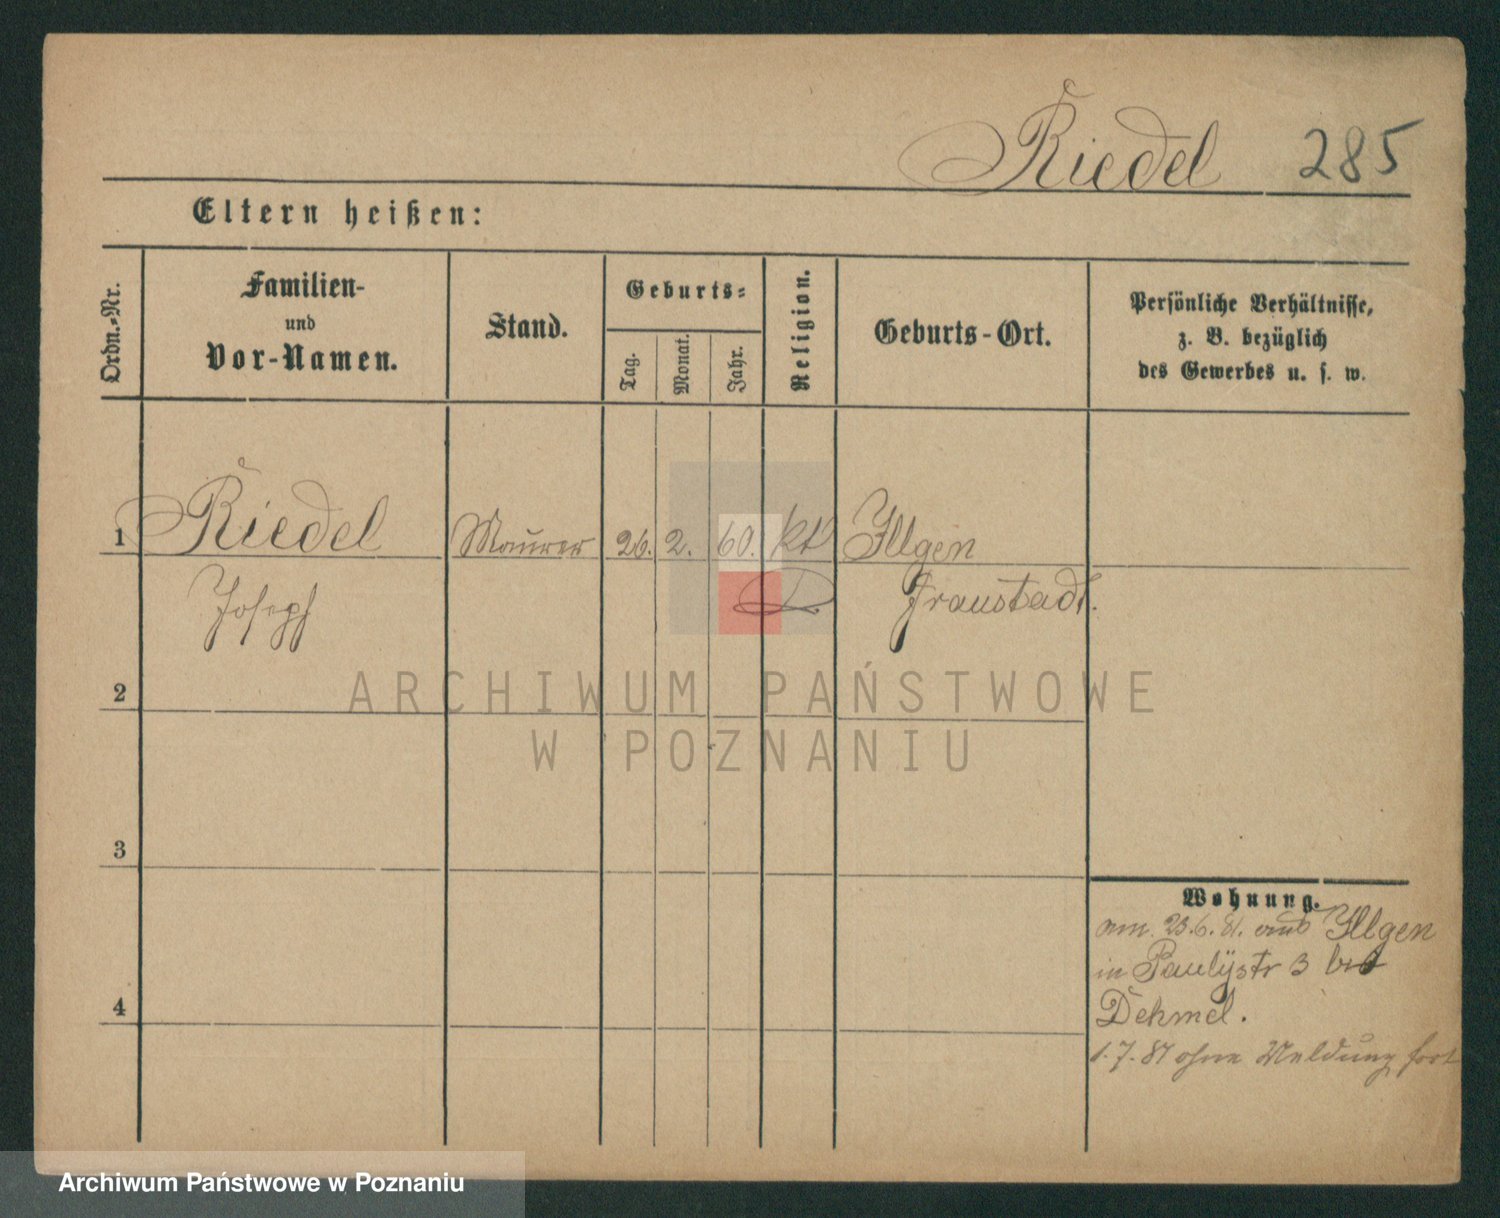 Riedel 285
Eltern heißen:
Ordn.-Nr.
Familien-
und
Vor-Namen.
Stand.
Geburts-
Tag.
Monat.
Jahr.
Religion.
Geburts-Ort.
Persönliche Verhältnisse,
z. B. bezüglich
des Gewerbes u. s. w.
1 Riedel Maurer 26. 2. 60. kt Illgen
Joseph Fraustadt.
2
3
4
Wohnung.
am 23.6.81. aus Illgen
in Paulystr 3 bei
Dehmel.
1.7.81 ohne Meldung fort
ARCHIWUM PAŃSTWOWE
W POZNANIU
Archiwum Państwowe w Poznaniu